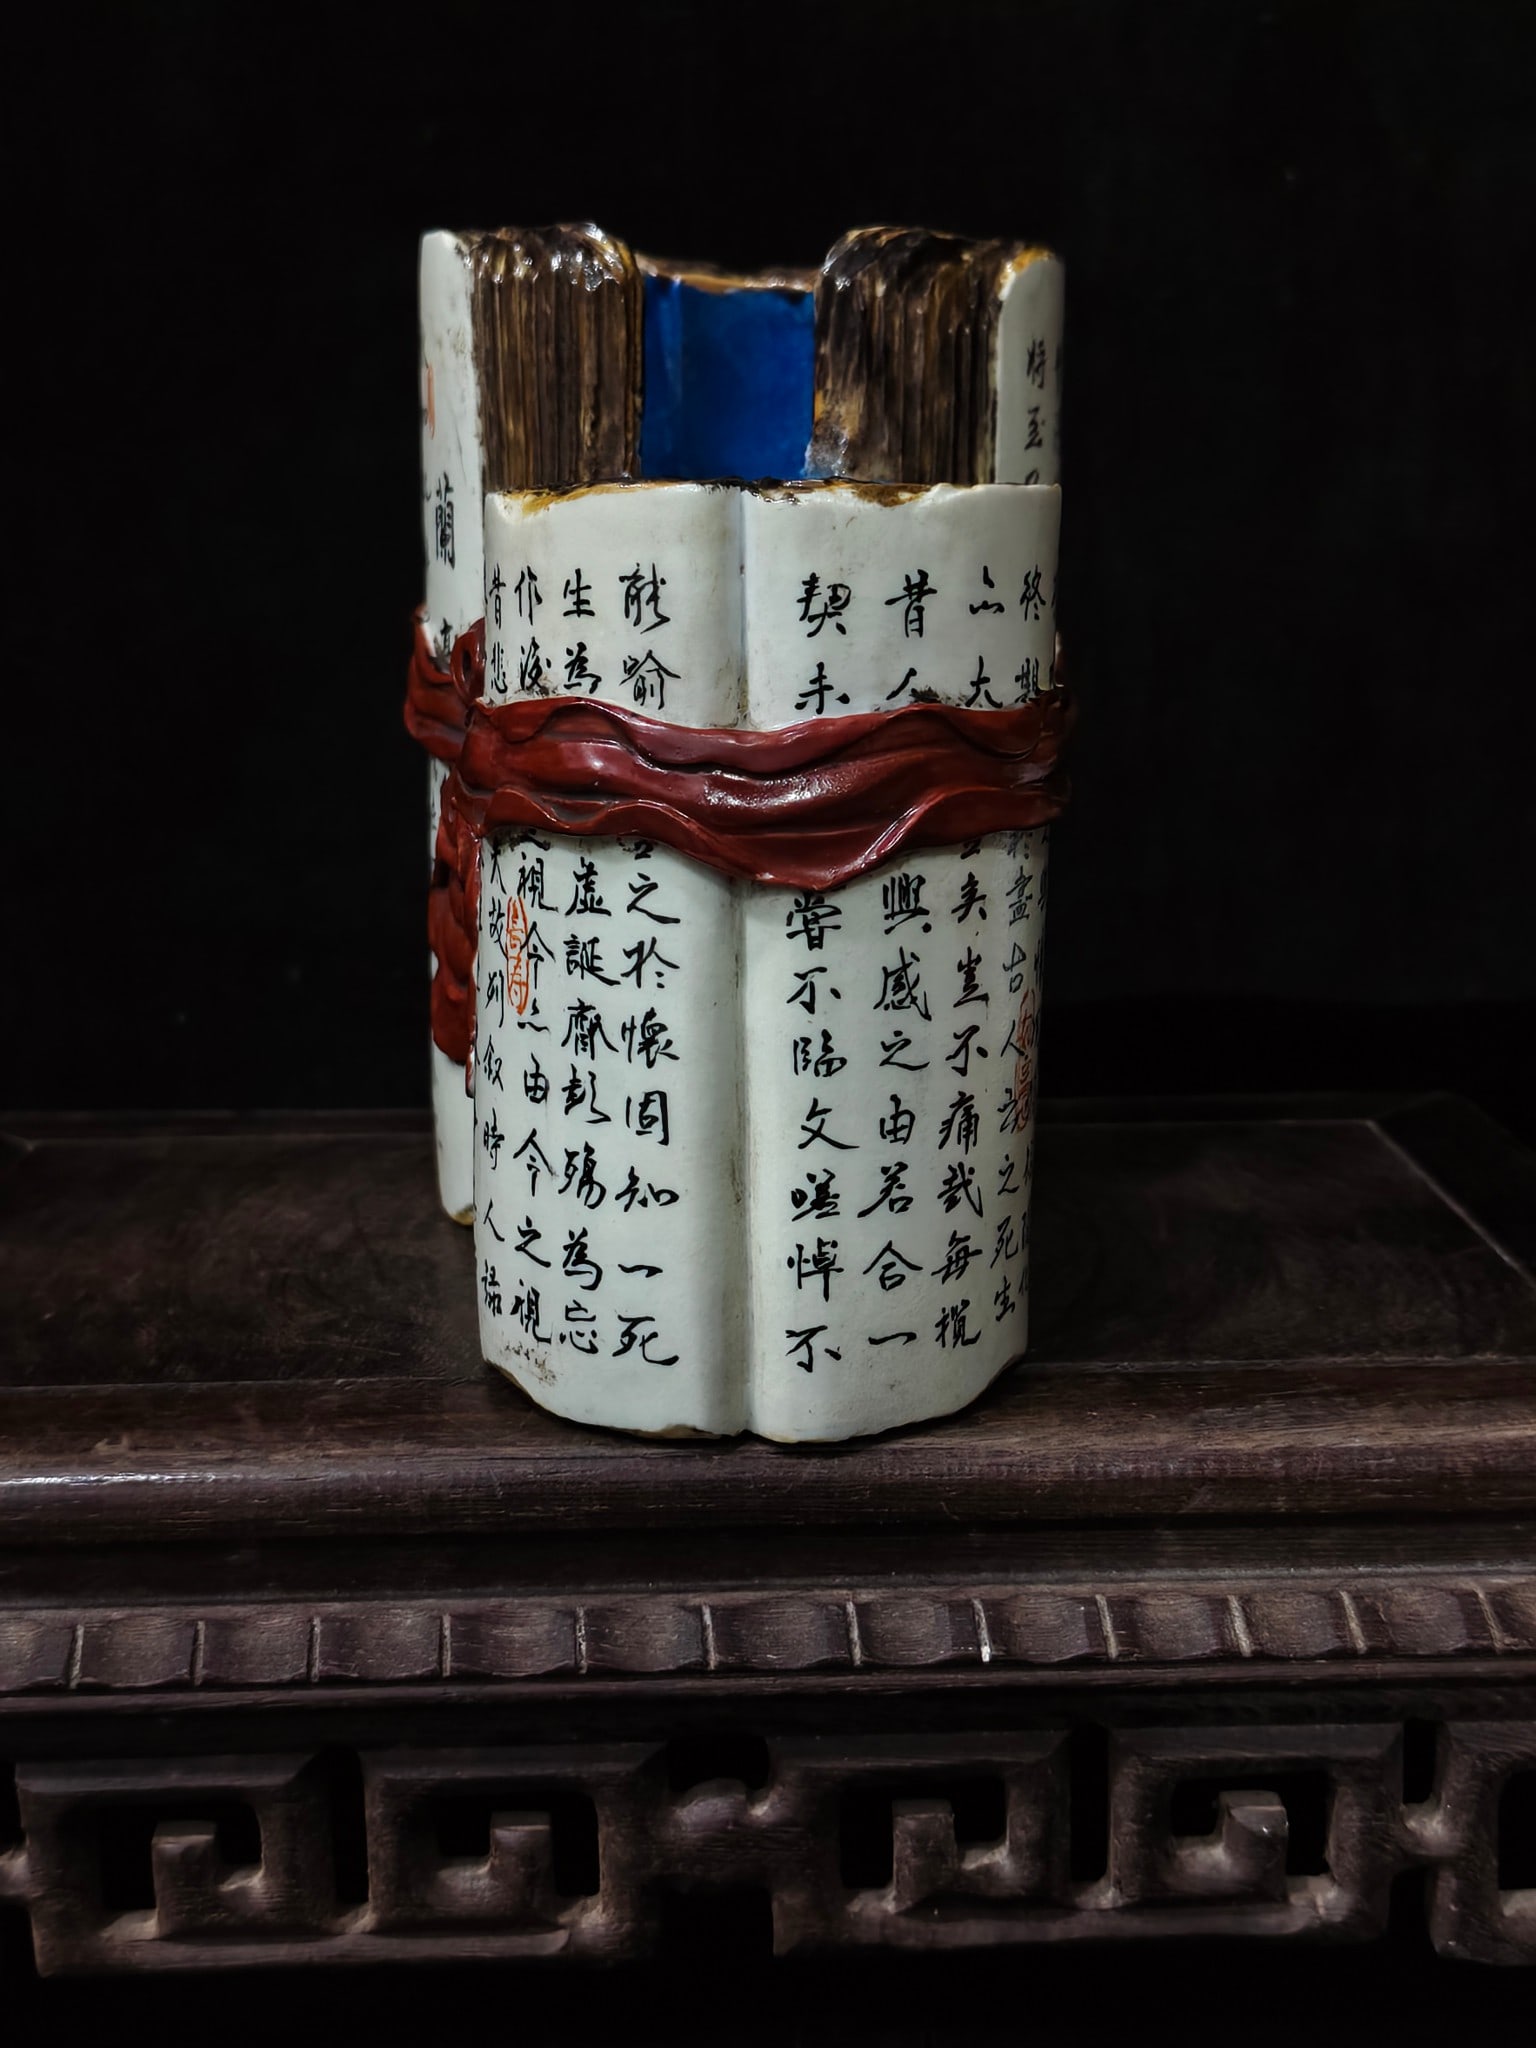 將至
終期盡古人之死生
亦大矣豈不痛哉每攬
昔人興感之由若合一
契未嘗不臨文嗟悼不
能喻之於懷固知一死
生為虛誕齊彭殤為忘
作後視今亦由今之視
昔悲夫故列敘時人錄
蘭